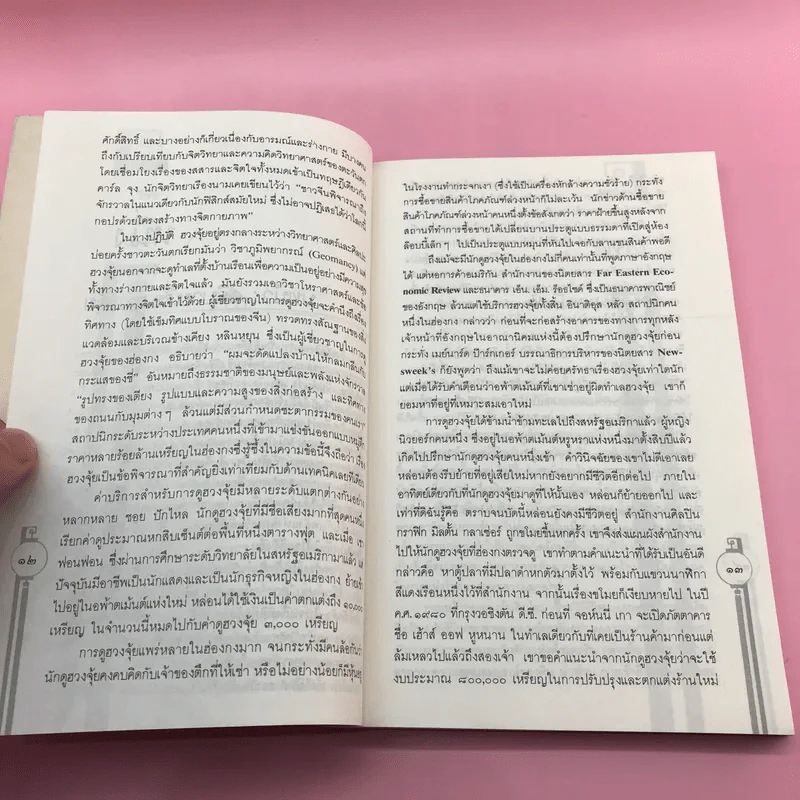 ศักดิ์สิทธิ์ และบางอย่างก็เกี่ยวเนื่องกับอารมณ์และร่างกาย มีบางคน
ถึงกับเปรียบเทียบกับจิตวิทยาและความคิดวิทยาศาสตร์ของตะวันตก
โดยเชื่อมโยงเรื่องของสสารและจิตใจทั้งหมดเข้าเป็นทฤษฎีเดียวกัน
คาร์ล จุง นักจิตวิทยาเรืองนามเคยเขียนไว้ว่า “ชาวจีนพิจารณาถึง
จักรวาลในแนวเดียวกับนักฟิสิกส์สมัยใหม่ ซึ่งไม่อาจปฏิเสธได้ว่าโลกนี้
กอปรด้วยโครงสร้างทางจิตกายภาพ”
ในทางปฏิบัติ ฮวงจุ้ยอยู่ตรงกลางระหว่างวิทยาศาสตร์และศิลปะ
บ่อยครั้งชาวตะวันตกเรียกมันว่า วิชาภูมิพยากรณ์ (Geomancy) แต่
ฮวงจุ้ยนอกจากจะดูทำเลที่ตั้งบ้านเรือนเพื่อความเป็นอยู่อย่างมีความสุข
ทั้งทางร่างกายและจิตใจแล้ว มันยังรวมเอาวิชาโหราศาสตร์และการ
พิจารณาทางจิตใจเข้าไว้ด้วย ผู้เชี่ยวชาญในการดูฮวงจุ้ยจะคำนึงถึงเรื่อง
ทิศทาง (โดยใช้เข็มทิศแบบโบราณของจีน) ทรวดทรงสัณฐานของสิ่ง
แวดล้อมและบริเวณข้างเคียง หลินหยุน ซึ่งเป็นผู้เชี่ยวชาญในการดู
ฮวงจุ้ยของฮ่องกง อธิบายว่า “ผมจะดัดแปลงบ้านให้กลมกลืนกับ
กระแสของชี่” อันหมายถึงธรรมชาติของมนุษย์และพลังแห่งจักรวาล
“รูปทรงของเตียง รูปแบบและความสูงของสิ่งก่อสร้าง และทิศทาง
ของถนนกับมุมต่างๆ ล้วนแต่มีส่วนกำหนดชะตากรรมของคนเรา”
สถาปนิกระดับระหว่างประเทศคนหนึ่งที่เข้ามาแข่งขันออกแบบ
ราคาหลายร้อยล้านเหรียญในฮ่องกงซึ่งรู้ซึ้งในความข้อนี้จึงถือว่า เรื่อง
ฮวงจุ้ยเป็นข้อพิจารณาที่สำคัญยิ่งเท่าเทียมกับด้านเทคนิคเลยทีเดียว
ค่าบริการสำหรับการดูฮวงจุ้ยมีหลายระดับแตกต่างกันอย่าง
หลากหลาย ชอย ปักไหล นักดูฮวงจุ้ยที่มีชื่อเสียงมากที่สุดคนหนึ่ง
เรียกค่าดูประมาณหกสิบเซ็นต์ต่อพื้นที่หนึ่งตารางฟุต และเมื่อ เขา
ฟอนฟอน ซึ่งผ่านการศึกษาระดับวิทยาลัยในสหรัฐอเมริกามาแล้ว แต่
ปัจจุบันมีอาชีพเป็นนักแสดงและเป็นนักธุรกิจหญิงในฮ่องกง ย้ายเข้า
ไปอยู่ในอพ้าตเม้นต์แห่งใหม่ หล่อนได้ใช้เงินเป็นค่าตกแต่งถึง ๑๐,๐๐๐
เหรียญ ในจำนวนนี้หมดไปกับค่าดูฮวงจุ้ย ๓,๐๐๐ เหรียญ
การดูฮวงจุ้ยแพร่หลายในฮ่องกงมาก จนกระทั่งมีคนล้อกันว่า
นักดูฮวงจุ้ยคงคบคิดกับเจ้าของตึกที่ให้เช่า หรือไม่อย่างน้อยก็มีหุ้นอยู่
๑๒
ในโรงงานทำกระจกเงา (ซึ่งใช้เป็นเครื่องหักล้างความชั่วร้าย) กระทั่ง
การซื้อขายสินค้าโภคภัณฑ์ล่วงหน้าก็ไม่ละเว้น นักข่าวด้านซื้อขาย
สินค้าโภคภัณฑ์ล่วงหน้าคนหนึ่งตั้งข้อสังเกตว่า ราคาฝ้ายขึ้นสูงหลังจาก
สถานที่ทำการซื้อขายได้เปลี่ยนบานประตูแบบธรรมดาที่เปิดสู่ห้อง
ล็อบบี้เล็กๆ ไปเป็นประตูแบบหมุนที่หันไปเจอกับลานขนสินค้าพอดี
ถึงแม้จะมีนักดูฮวงจุ้ยในฮ่องกงไม่กี่คนเท่านั้นที่พูดภาษาอังกฤษ
ได้ แต่หอการค้าอเมริกัน สำนักงานของนิตยสาร Far Eastern Eco-
nomic Review และธนาคาร เอ็น. เอ็ม. ร็อธไชด์ ซึ่งเป็นธนาคารพาณิชย์
ของอังกฤษ ล้วนแต่ใช้บริการฮวงจุ้ยทั้งสิ้น อินาติอุส หลัว สถาปนิกคน
หนึ่งในฮ่องกง กล่าวว่า ก่อนที่จะก่อสร้างอาคารของทางการทุกหลัง
เจ้าหน้าที่อังกฤษในอาณานิคมแห่งนี้ต้องปรึกษานักดูฮวงจุ้ยก่อน
กระทั่ง เมย์นาร์ด ปาร์กเกอร์ บรรณาธิการบริหารของนิตยสาร New-
sweek's ก็ยังพูดว่า ถึงแม้เขาจะไม่ค่อยศรัทธาเรื่องฮวงจุ้ยเท่าใดนัก
แต่เมื่อได้รับคำเตือนว่าอพ้าตเม้นต์ที่เขาเช่าอยู่ผิดทำเลฮวงจุ้ย เขาก็
ยอมหาที่อยู่ที่เหมาะสมเอาใหม่
การดูฮวงจุ้ยได้ข้ามน้ำข้ามทะเลไปถึงสหรัฐอเมริกาแล้ว ผู้หญิง
นิวยอร์กคนหนึ่ง ซึ่งอยู่ในอพ้าตเม้นต์หรูหราแห่งหนึ่งมาตั้งสิบปีแล้ว
เกิดไปปรึกษานักดูฮวงจุ้ยคนหนึ่งเข้า คำวินิจฉัยของเขาไม่ดีเอาเลย
หล่อนต้องรีบย้ายที่อยู่เสียใหม่หากยังอยากมีชีวิตอีกต่อไป ภายใน
อาทิตย์เดียวกับที่นักดูฮวงจุ้ยมาดูที่ให้นั้นเอง หล่อนก็ย้ายออกไป และ
เท่าที่ดิฉันรู้คือ ตราบจนบัดนี้หล่อนยังคงมีชีวิตอยู่ สำนักงานศิลปิน
กราฟิก มิลตั้น กลาเซ่อร์ ถูกขโมยขึ้นหกครั้ง เขาจึงส่งแผนผังสำนักงาน
ไปให้นักดูฮวงจุ้ยที่ฮ่องกงตรวจดู เขาทำตามคำแนะนำที่ได้รับเป็นอันดี
กล่าวคือ หาตู้ปลาที่มีปลาดำหกตัวมาตั้งไว้ พร้อมกับแขวนนาฬิกา
สีแดงเรือนหนึ่งไว้ที่สำนักงาน จากนั้นเรื่องขโมยก็เงียบหายไป ในปี
ค.ศ.๑๙๘๐ ที่กรุงวอชิงตัน ดี.ซี. ก่อนที่ จอห์นนี่ เกา จะเปิดภัตตาคาร
ชื่อ เฮ้าส์ ออฟ หูหนาน ในทำเลเดียวกับที่เคยเป็นร้านค้ามาก่อนแต่
ล้มเหลวไปแล้วถึงสองเจ้า เขาขอคำแนะนำจากนักดูฮวงจุ้ยว่าจะใช้
งบประมาณ ๘๐๐,๐๐๐ เหรียญในการปรับปรุงและตกแต่งร้านใหม่
๑๓